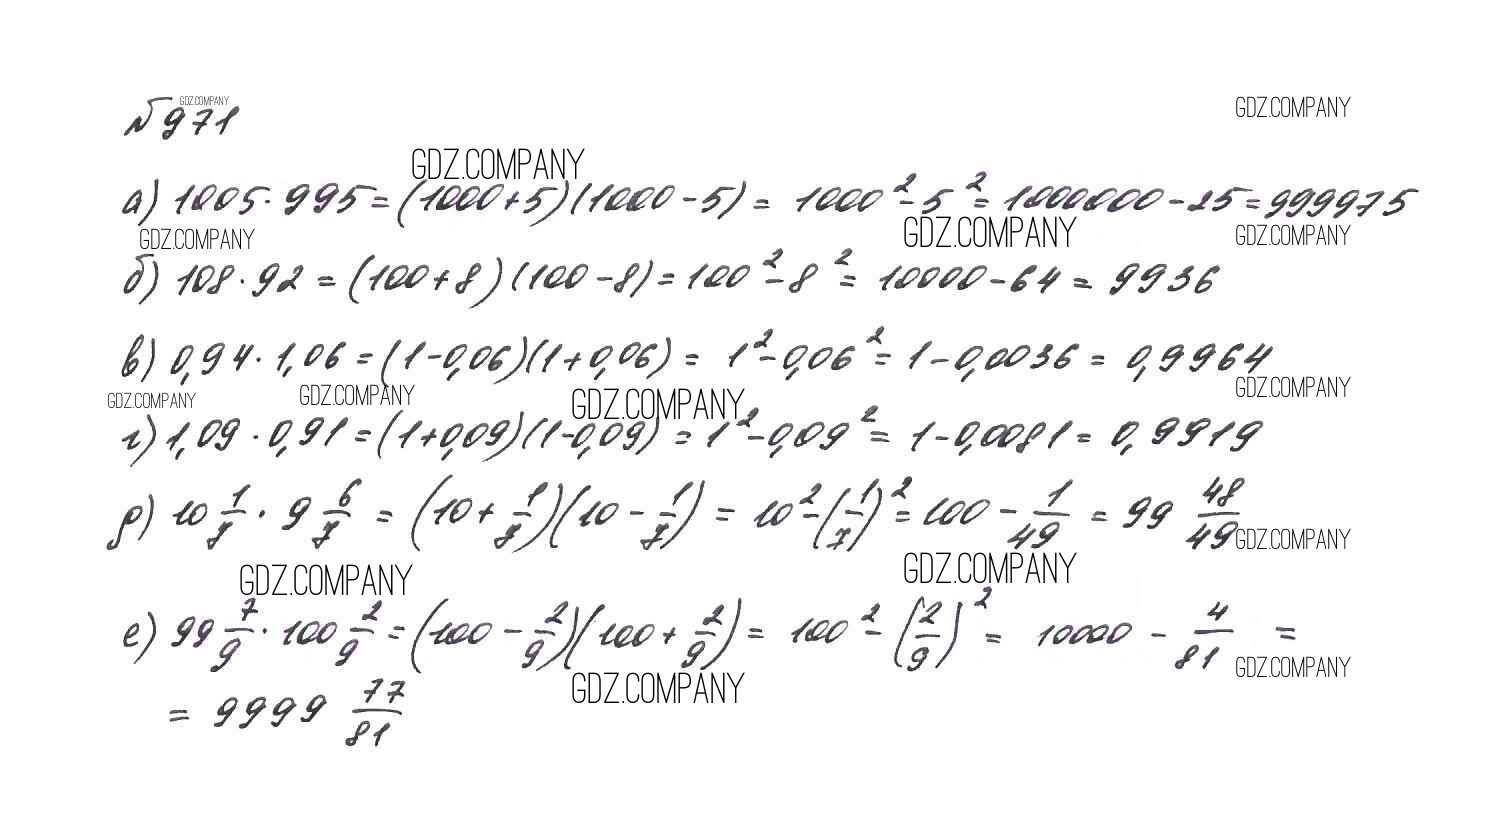 №971 GDZ.COMPANY
GDZ.COMPANY
GDZ.COMPANY
а) 1005 · 995 = (1000 + 5)(1000 - 5) = 1000² - 5² = 1000000 - 25 = 999975
GDZ.COMPANY GDZ.COMPANY GDZ.COMPANY
б) 108 · 92 = (100 + 8)(100 - 8) = 100² - 8² = 10000 - 64 = 9936
в) 0,94 · 1,06 = (1 - 0,06)(1 + 0,06) = 1² - 0,06² = 1 - 0,0036 = 0,9964
GDZ.COMPANY GDZ.COMPANY GDZ.COMPANY GDZ.COMPANY
г) 1,09 · 0,91 = (1 + 0,09)(1 - 0,09) = 1² - 0,09² = 1 - 0,0081 = 0,9919
д) 10 1/7 · 9 6/7 = (10 + 1/7)(10 - 1/7) = 10² - (1/7)² = 100 - 1/49 = 99 48/49
GDZ.COMPANY
GDZ.COMPANY GDZ.COMPANY
е) 99 7/9 · 100 2/9 = (100 - 2/9)(100 + 2/9) = 100² - (2/9)² = 10000 - 4/81 =
GDZ.COMPANY GDZ.COMPANY
= 9999 77/81